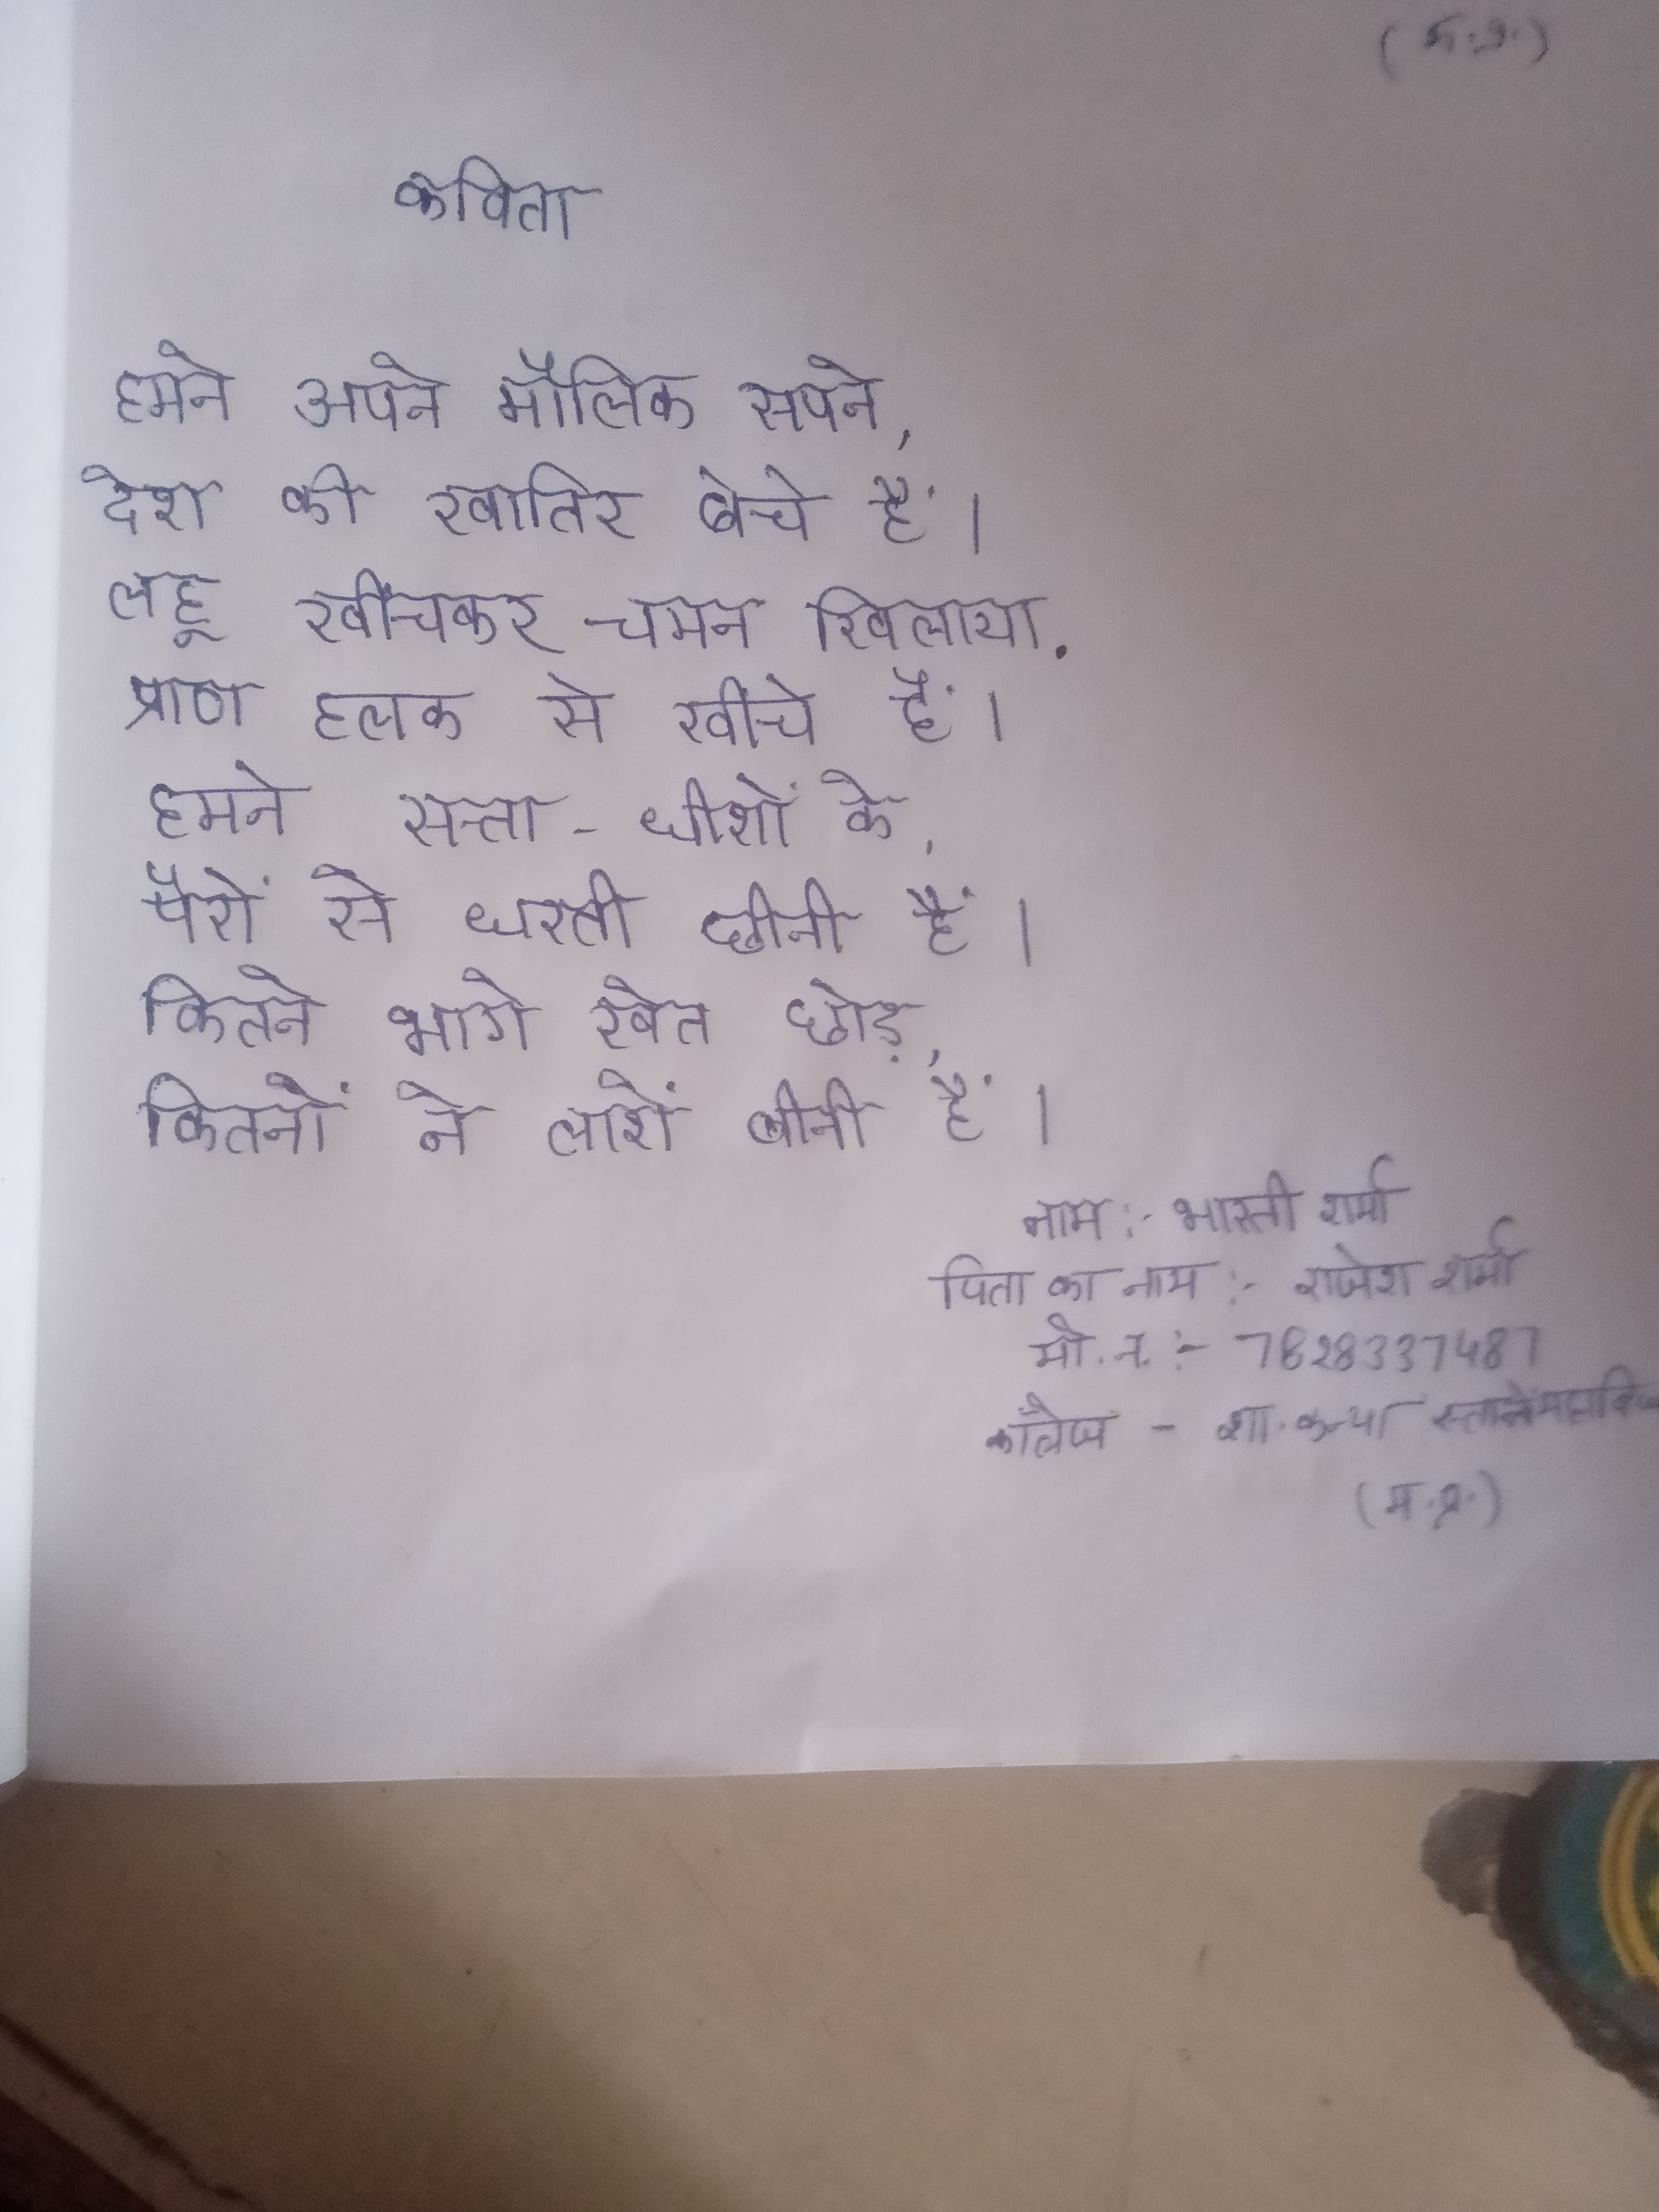 (म.प्र.)
कविता
हमने अपने मौलिक सपने,
देश की खातिर बेचे हैं।
लहू खींचकर चमन खिलाया.
प्राण हलक से खींचे हैं।
हमने सत्ता - धीशों के,
पैरों से धरती छीनी हैं।
कितने भागे खेत छोड़,
कितनों ने लाशें बीनी हैं।
नाम :- भारती शर्मा
पिता का नाम :- राजेश शर्मा
मो. न. :- 7828337487
कॉलेज - शा. कन्या
(म.प्र.)